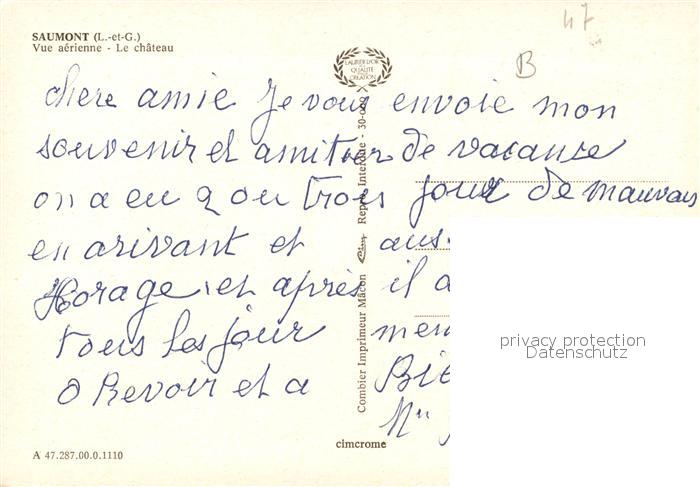 47
B
SAUMONT (L.-et-G.)
Vue aérienne - Le château
LAURIER D'OR
DE
QUALITÉ
CRÉATION
chere amie Je vous envoie mon
souvenir et amitier de vacance
on a eu 2 ou trois jour de mauvais
en arivant et aus
Horage et après il a
tous les jour men
O Revoir et a Bie
Combier Imprimeur Mâcon Repr. Interdite
cimcrome
A 47.287.00.0.1110
privacy protection
Datenschutz